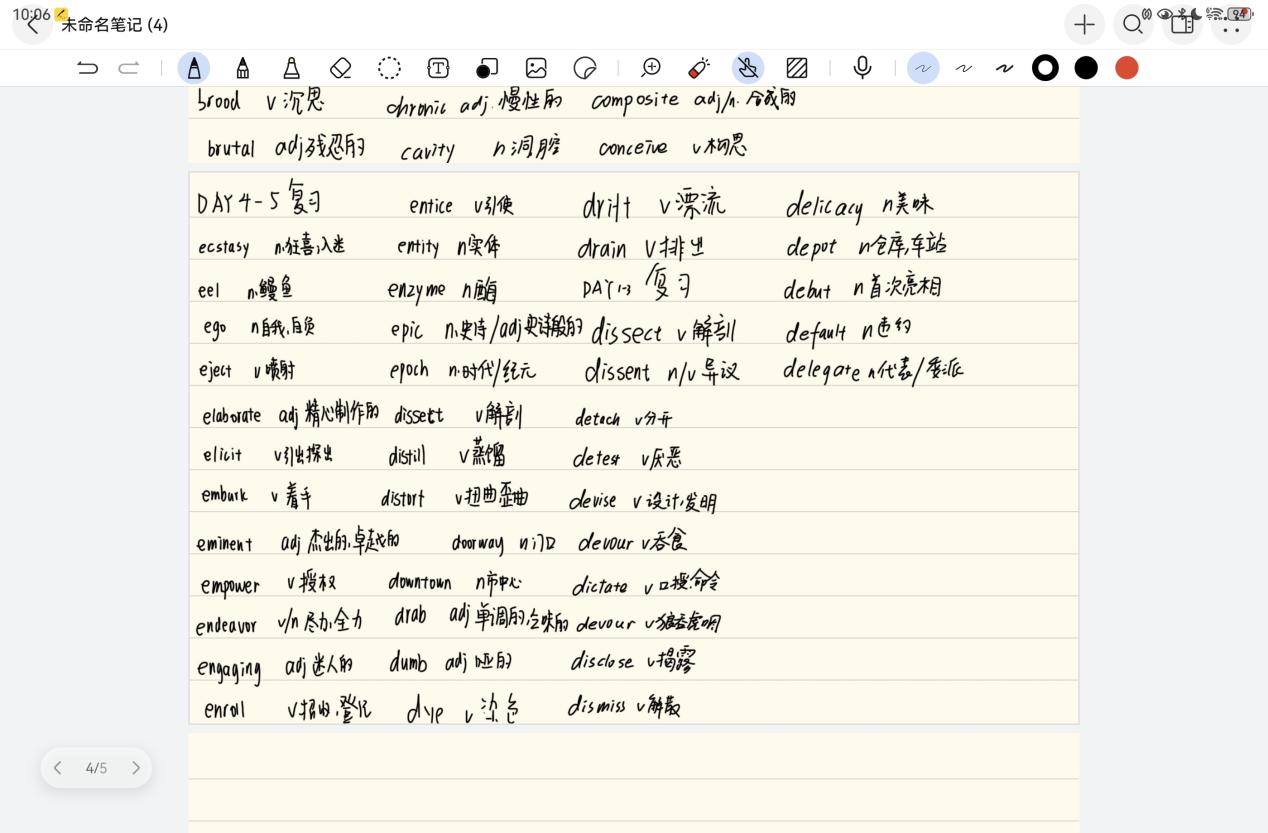 10:06
未命名笔记 (4)
94
brood v 沉思 chronic adj. 慢性的 composite adj/n. 合成的
brutal adj 残忍的 cavity n 洞腔 conceive v 构思
DAY 4-5 复习 entice v 引使 drift v 漂流 delicacy n 美味
ecstasy n.狂喜,入迷 entity n 实体 drain v 排出 depot n 仓库,车站
eel n.鳗鱼 enzyme n 酶 DAY 1-3 复习 debut n 首次亮相
ego n 自我,自负 epic n.史诗/adj 史诗般的 dissect v 解剖 default n 违约
eject v 喷射 epoch n.时代/纪元 dissent n/v 异议 delegate n 代表/委派
elaborate adj 精心制作的 dissect v 解剖 detach v 分开
elicit v 引出探出 distill v 蒸馏 detest v 厌恶
embark v 着手 distort v 扭曲歪曲 devise v 设计,发明
eminent adj 杰出的,卓越的 doorway n 门口 devour v 吞食
empower v 授权 downtown n 市中心 dictate v 口授.命令
endeavor v/n 尽力,全力 drab adj 单调的,乏味的 devour v 狼吞虎咽
engaging adj 迷人的 dumb adj 哑的 disclose v 揭露
enroll v 招收,登记 dye v 染色 dismiss v 解散
4/5